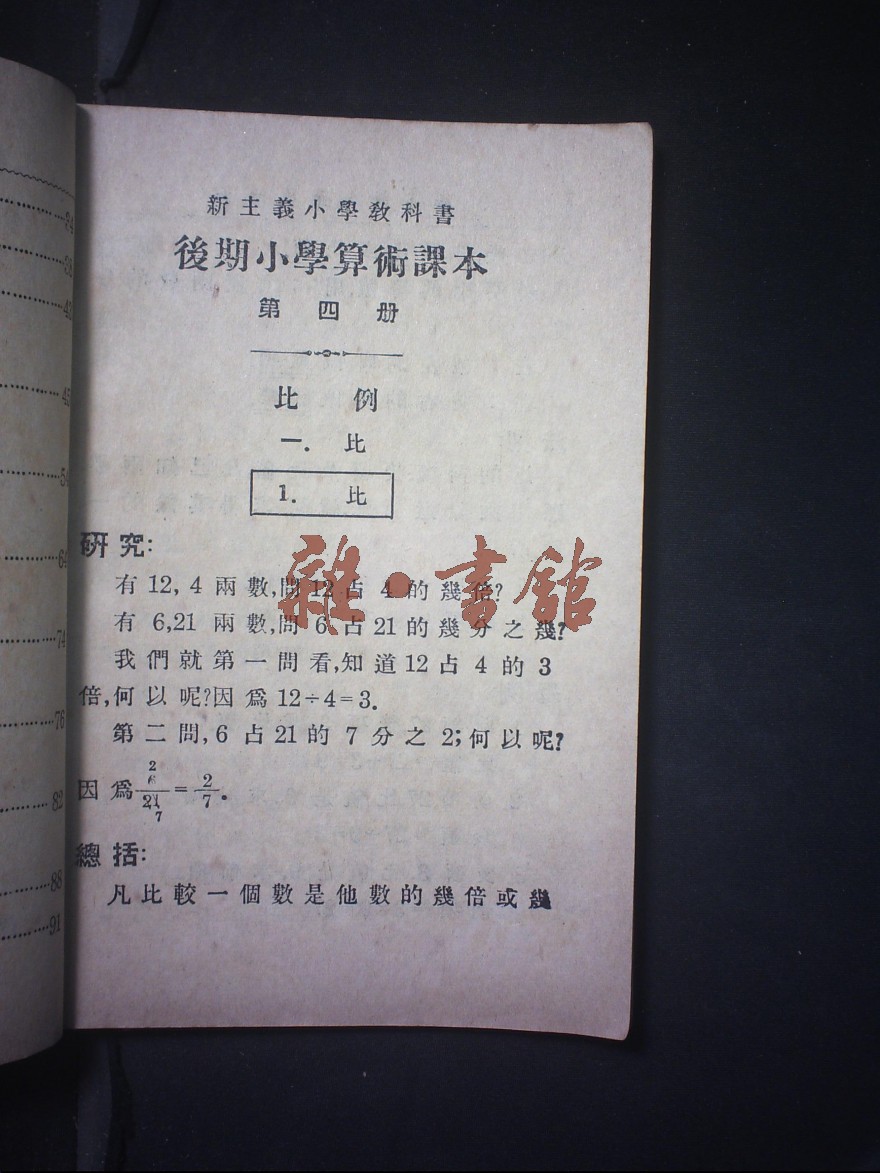 24
38
42
45
54
64
74
76
82
88
91
新主義小學教科書
後期小學算術課本
第四册
比例
一. 比
1. 比
研究:
有12,4兩數,問12占4的幾倍?
有6,21兩數,問6占21的幾分之幾?
我們就第一問看,知道12占4的3
倍,何以呢?因爲12÷4=3.
第二問,6占21的7分之2;何以呢?
2
因爲6/21=2/7.
7
總括:
凡比較一個數是他數的幾倍或幾
雜·書館